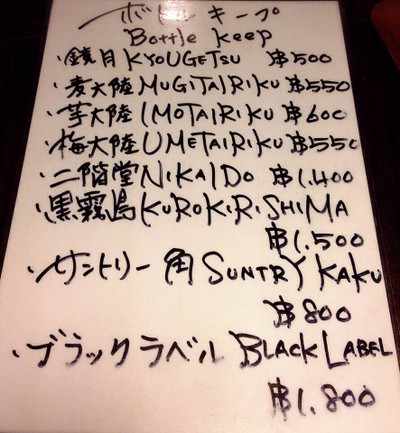 ボトルキープ
Bottle Keep
・鏡月 KYOUGETSU ฿500
・麦大陸 MUGITAIRIKU ฿550
・芋大陸 IMOTAIRIKU ฿600
・梅大陸 UMETAIRIKU ฿550
・二階堂 NIKAIDO ฿1,400
・黒霧島 KUROKIRISHIMA
฿1,500
・サントリー角 SUNTRY KAKU
฿800
・ブラックラベル BLACK LABEL
฿1,800